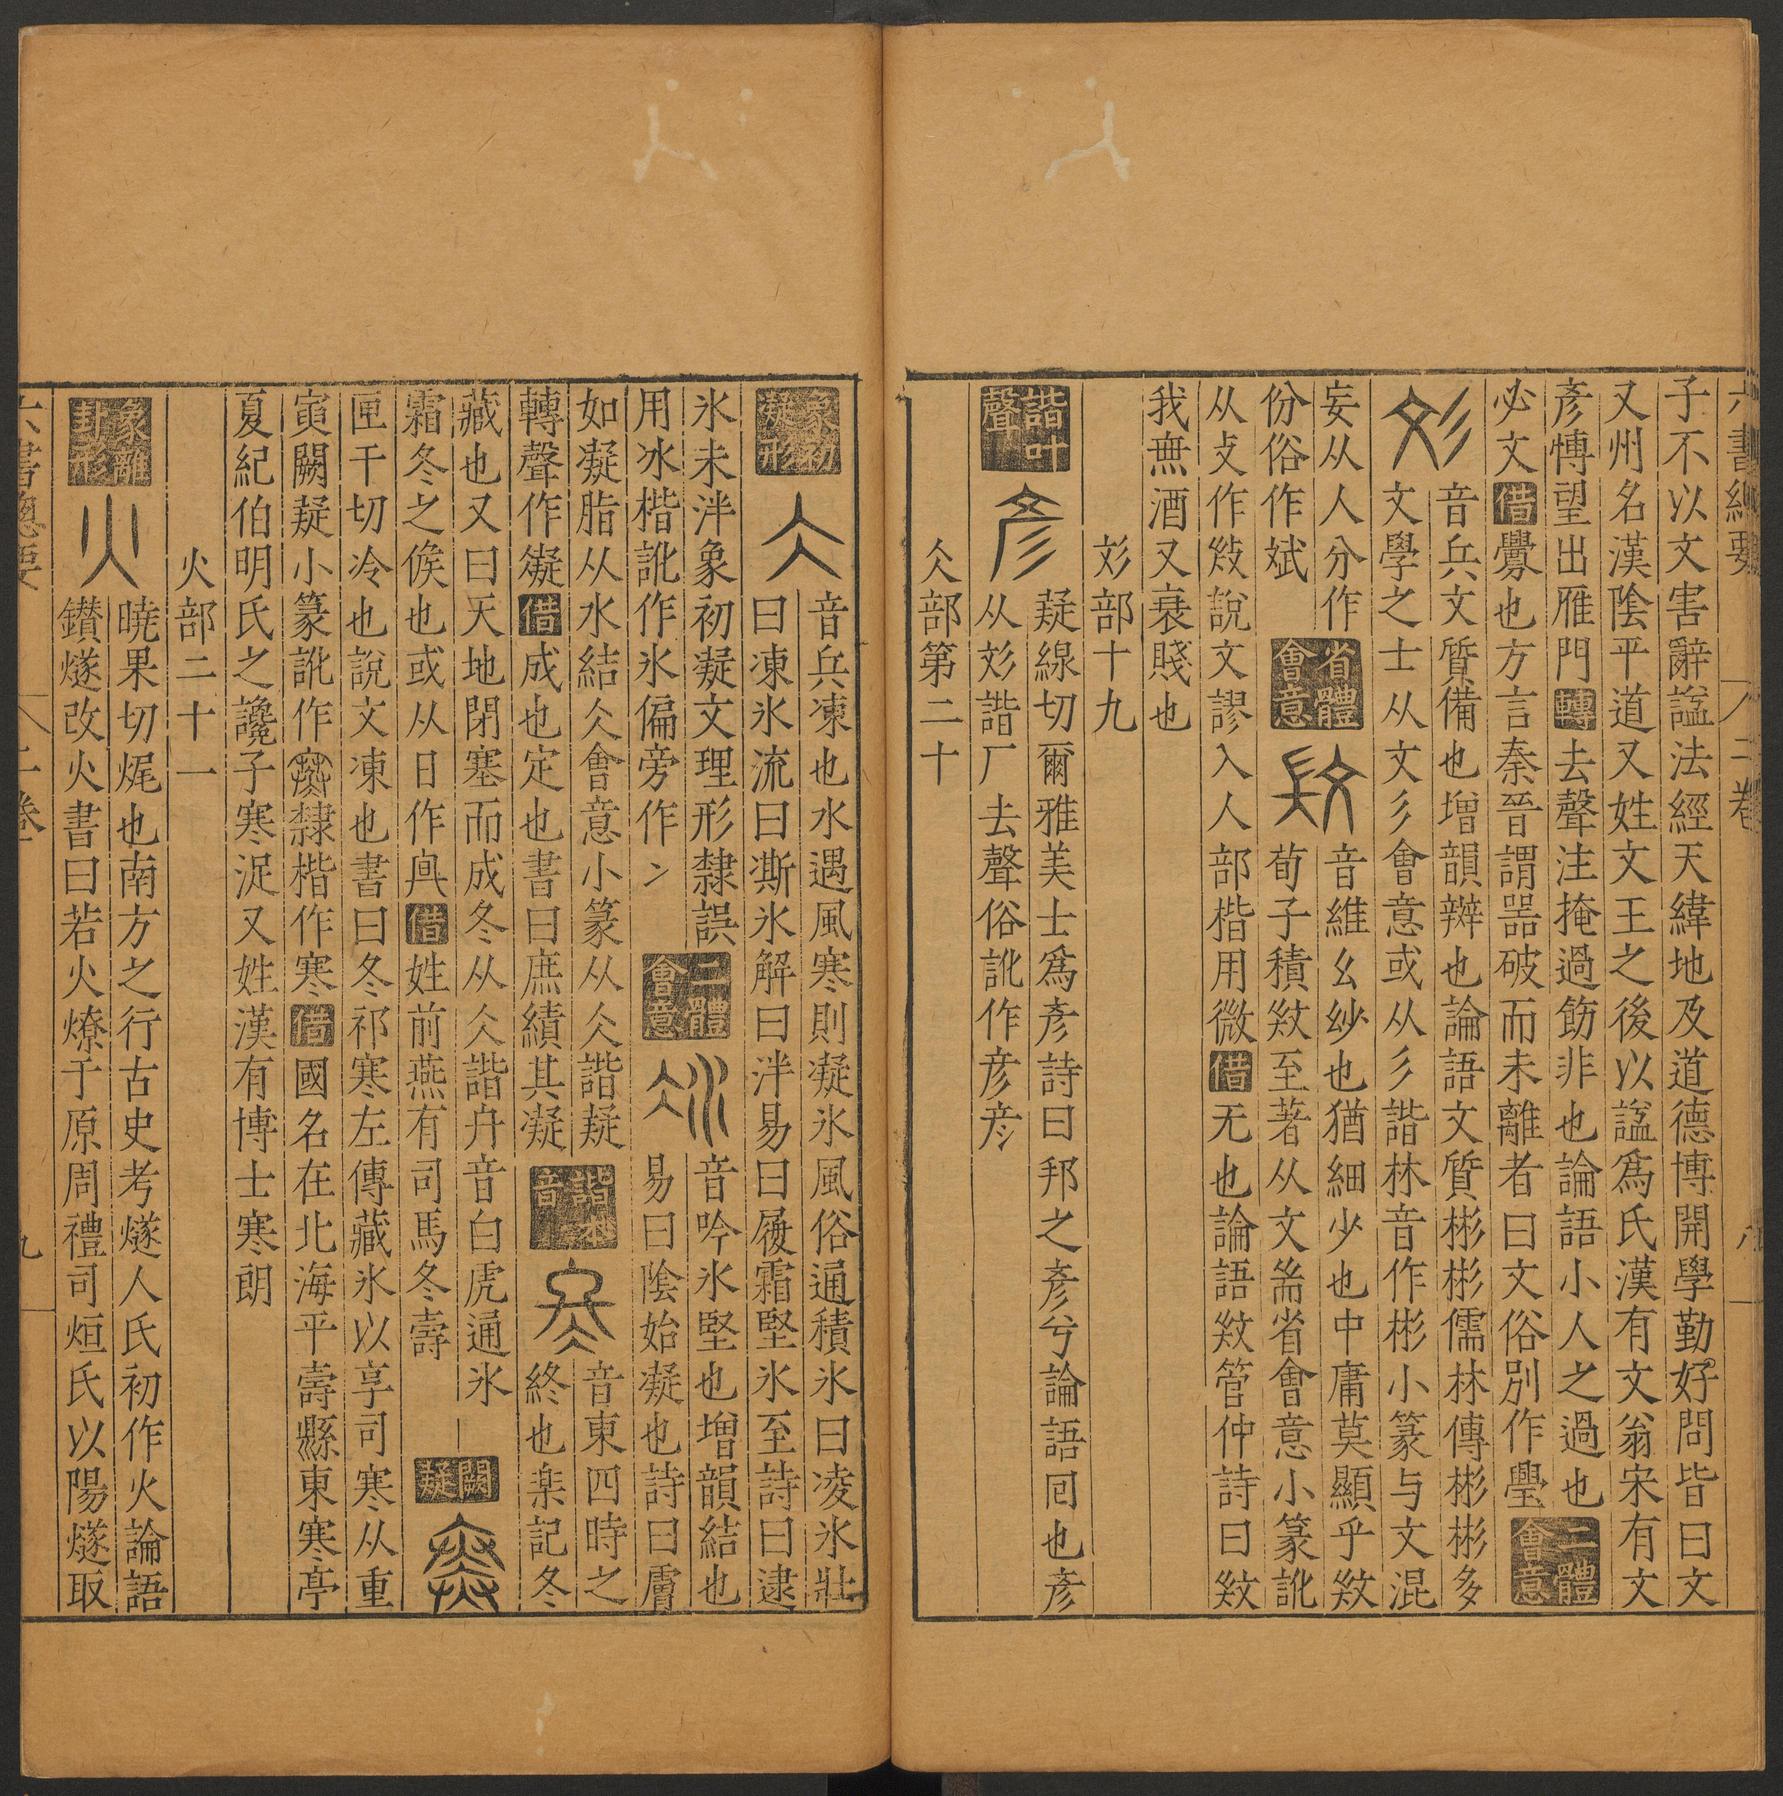 六書總要 二卷 八
子不以文害辭諡法經天緯地及道德博開學勤好問皆曰文
又州名漢陰平道又姓文王之後以諡爲氏漢有文翁宋有文
彥博望出雁門轉去聲注掩過飭非也論語小人之過也
必文借釁也方言秦晉謂器破而未離者曰文俗別作璺
二體會意
彣
音兵文質備也增韻辦也論語文質彬彬儒林傳彬彬多
文學之士从文彡會意或从彡諧林音作彬小篆与文混
妄从人分作份俗作斌
省體會意
音維幺紗也猶細少也中庸莫顯乎㪅
荀子積㪅至著从文耑省會意小篆訛
从攴作㪅說文謬入人部楷用微借无也論語㪅管仲詩曰㪅
我無酒又衰賤也
彣部十九
諧叶聲
彥
疑線切爾雅美士爲彥詩曰邦之彥兮論語同也彥
从彣諧厂去聲俗訛作彦彦
仌部第二十
象初凝形
仌
音兵凍也水遇風寒則凝氷風俗通積氷曰凌氷壯
曰凍氷流曰澌氷解曰泮易曰履霜堅氷至詩曰逮
氷未泮象初凝文理形隸誤
用冰楷訛作氷偏旁作冫
二體會意
冰
音吟氷堅也增韻結也
易曰陰始凝也詩曰膚
如凝脂从水結仌會意小篆从仌諧疑
轉聲作凝借成也定也書曰庶績其凝
音東四時之
終也楽記冬
藏也又曰天地閉塞而成冬从仌諧舟音白虎通氷
霜冬之候也或从日作㒷借姓前燕有司馬冬壽
闕疑
匣干切冷也說文凍也書曰冬祁寒左傳藏氷以享司寒从重
寅闕疑小篆訛作隸楷作寒借國名在北海平壽縣東寒亭
夏紀伯明氏之讒子寒浞又姓漢有博士寒朗
火部二十一
象離卦形
火
曉果切焜也南方之行古史考燧人氏初作火論語
鑽燧改火書曰若火燎于原周禮司烜氏以陽燧取
六書總要 二卷 九